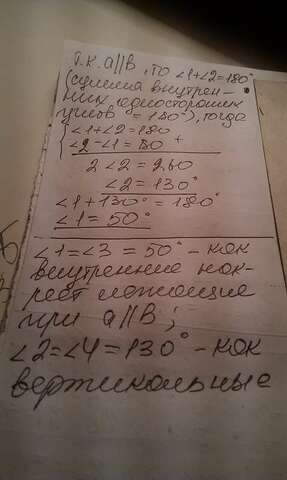 т.к. а||В, то ∠1+∠2=180°
(сумма внутрен-
них односторонних
углов =180°), тогда
{∠1+∠2=180
∠2-∠1=80 +
2∠2=260
∠2=130°
∠1+130°=180°
∠1=50°
∠1=∠3=50° - как
внутренние нак-
рест лежащие
при а||В;
∠2=∠4=130° - как
вертикальные